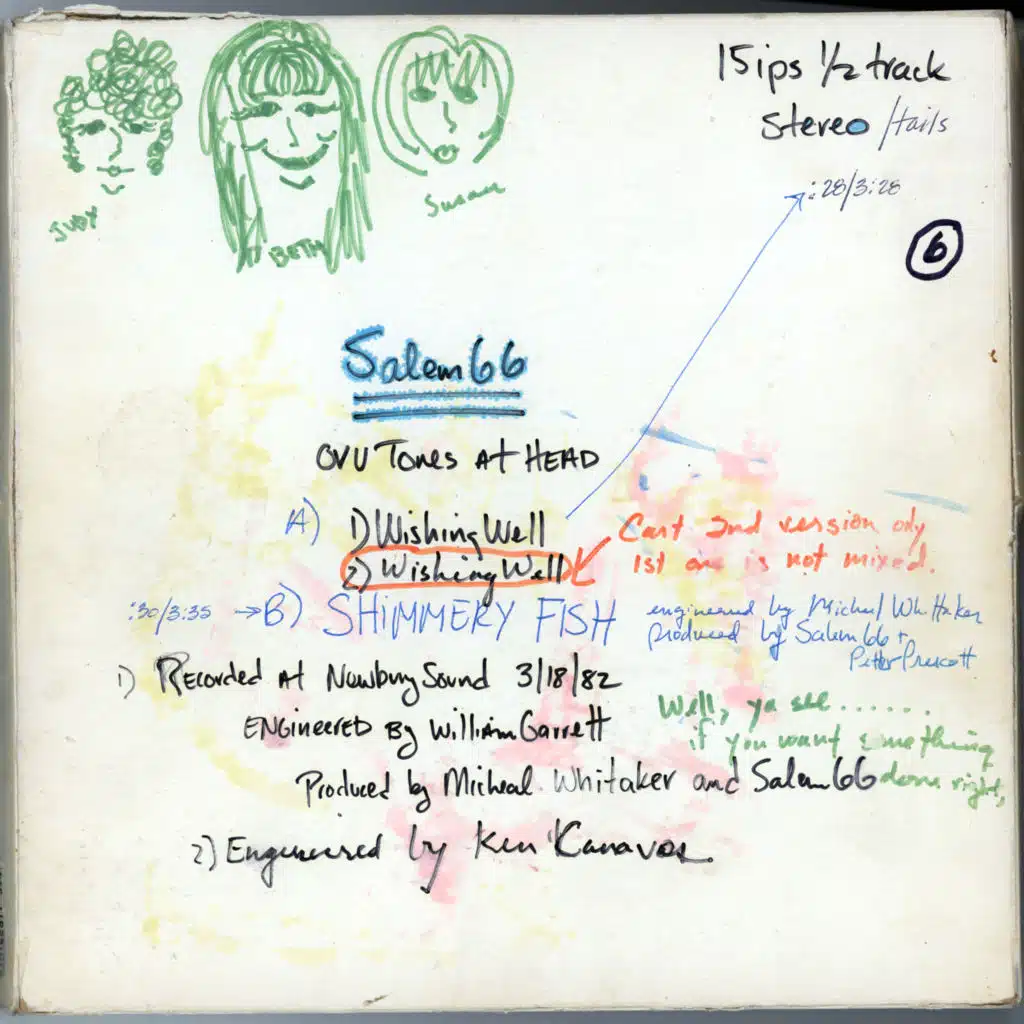 15ips 1/2 track
Stereo /tails
:28/3:28
6
JUDY
BETH
Susan
Salem 66
OVU Tones At HEAD
A) 1) Wishing Well
2) Wishing Well
Cart 2nd version only
1st one is not mixed.
:30/3:35 → B) SHIMMERY FISH
engineered by Michael Whittaker
produced by Salem 66 +
Peter Prescott
1) Recorded At Newbury Sound 3/18/82
ENGINEERED By William Garrett
Produced by Micheal Whitaker and Salem 66
Well, ya see......
if you want something
done right,
2) Engineered by Ken Kanavos